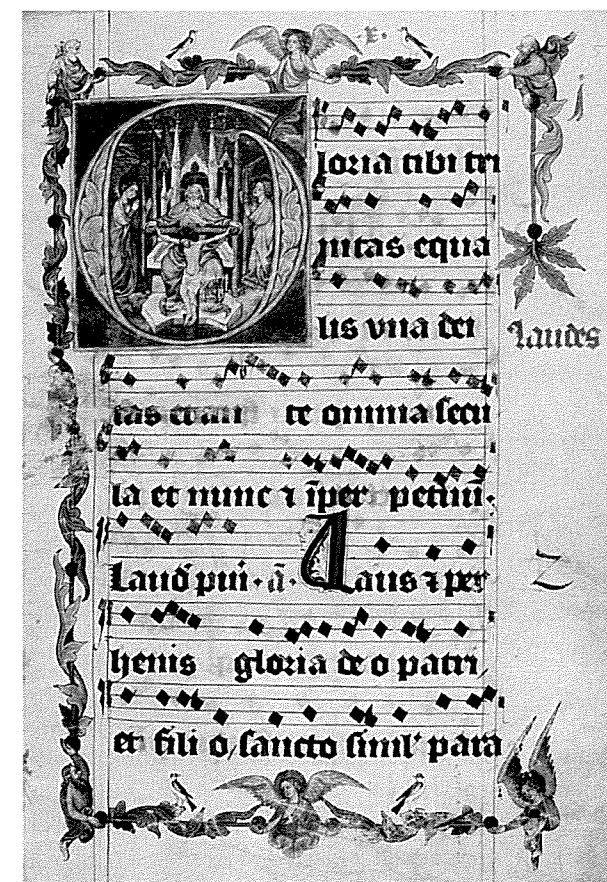 Gloria tibi tri
nitas equa
lis vna dei
laudes
tas et an te omnia secu
la et nunc ⁊ īper petuū.
Laud̄ pui · ā · Laus ⁊ per
hennis gloria de o patri
et fili o sancto siml' para